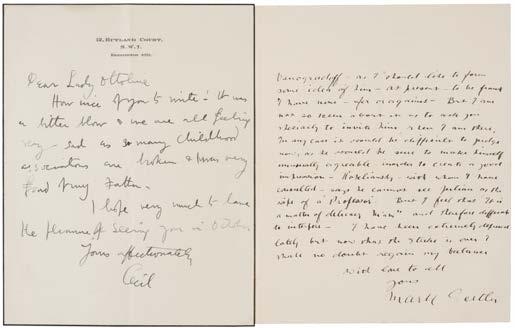 12, RUTLAND COURT,
S.W.7.
KENSINGTON
Dear Lady Ottoline
How nice of you to write! It was
a bitter blow & we are all feeling
very sad as so many childhood
associations are broken & I was very
fond of my Father.
I hope very much to have
the pleasure of seeing you in October
Yours affectionately
Cecil
Vinogradoff - as I should like to form
some idea of him - at present - to be frank
I have none - for or against - But I am
not so keen about it as to ask you
specially to invite him, when I am there,
In any case it would be difficult to judge
now, as he would be sure to make himself
unusually agreeable in order to create a good
impression - Koteliansky - with whom I have
consulted - says he cannot see Julian as the
wife of a "Professor". But I feel that it is
a matter of delicacy and therefore difficult
to interfere - I have been extremely depressed
lately but now that the strike is over I
shall no doubt regain my balance
with love to all
Yours
Mark Gertler